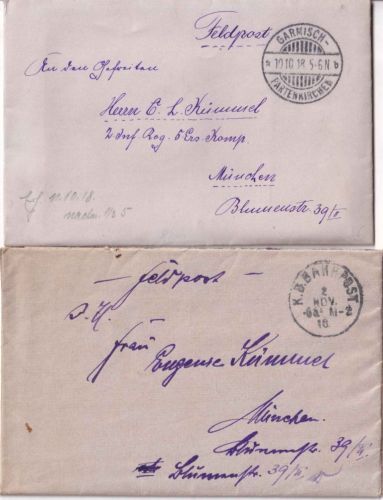 Feldpost
GARMISCH-
* 19.10.18. 5-6 N b
PARTENKIRCHEN
An den Gefreiten
Herrn E. L. Kümmel
2 Inf Reg. 5 Ers Komp.
München
Blumenstr. 39/II
10.18.
– Feldpost –
K.B. BAHNPOST
2
NOV.
18
Frau
Eugenie Kümmel
München.
Blumenstr. 39/II
Blumenstr. 39/II